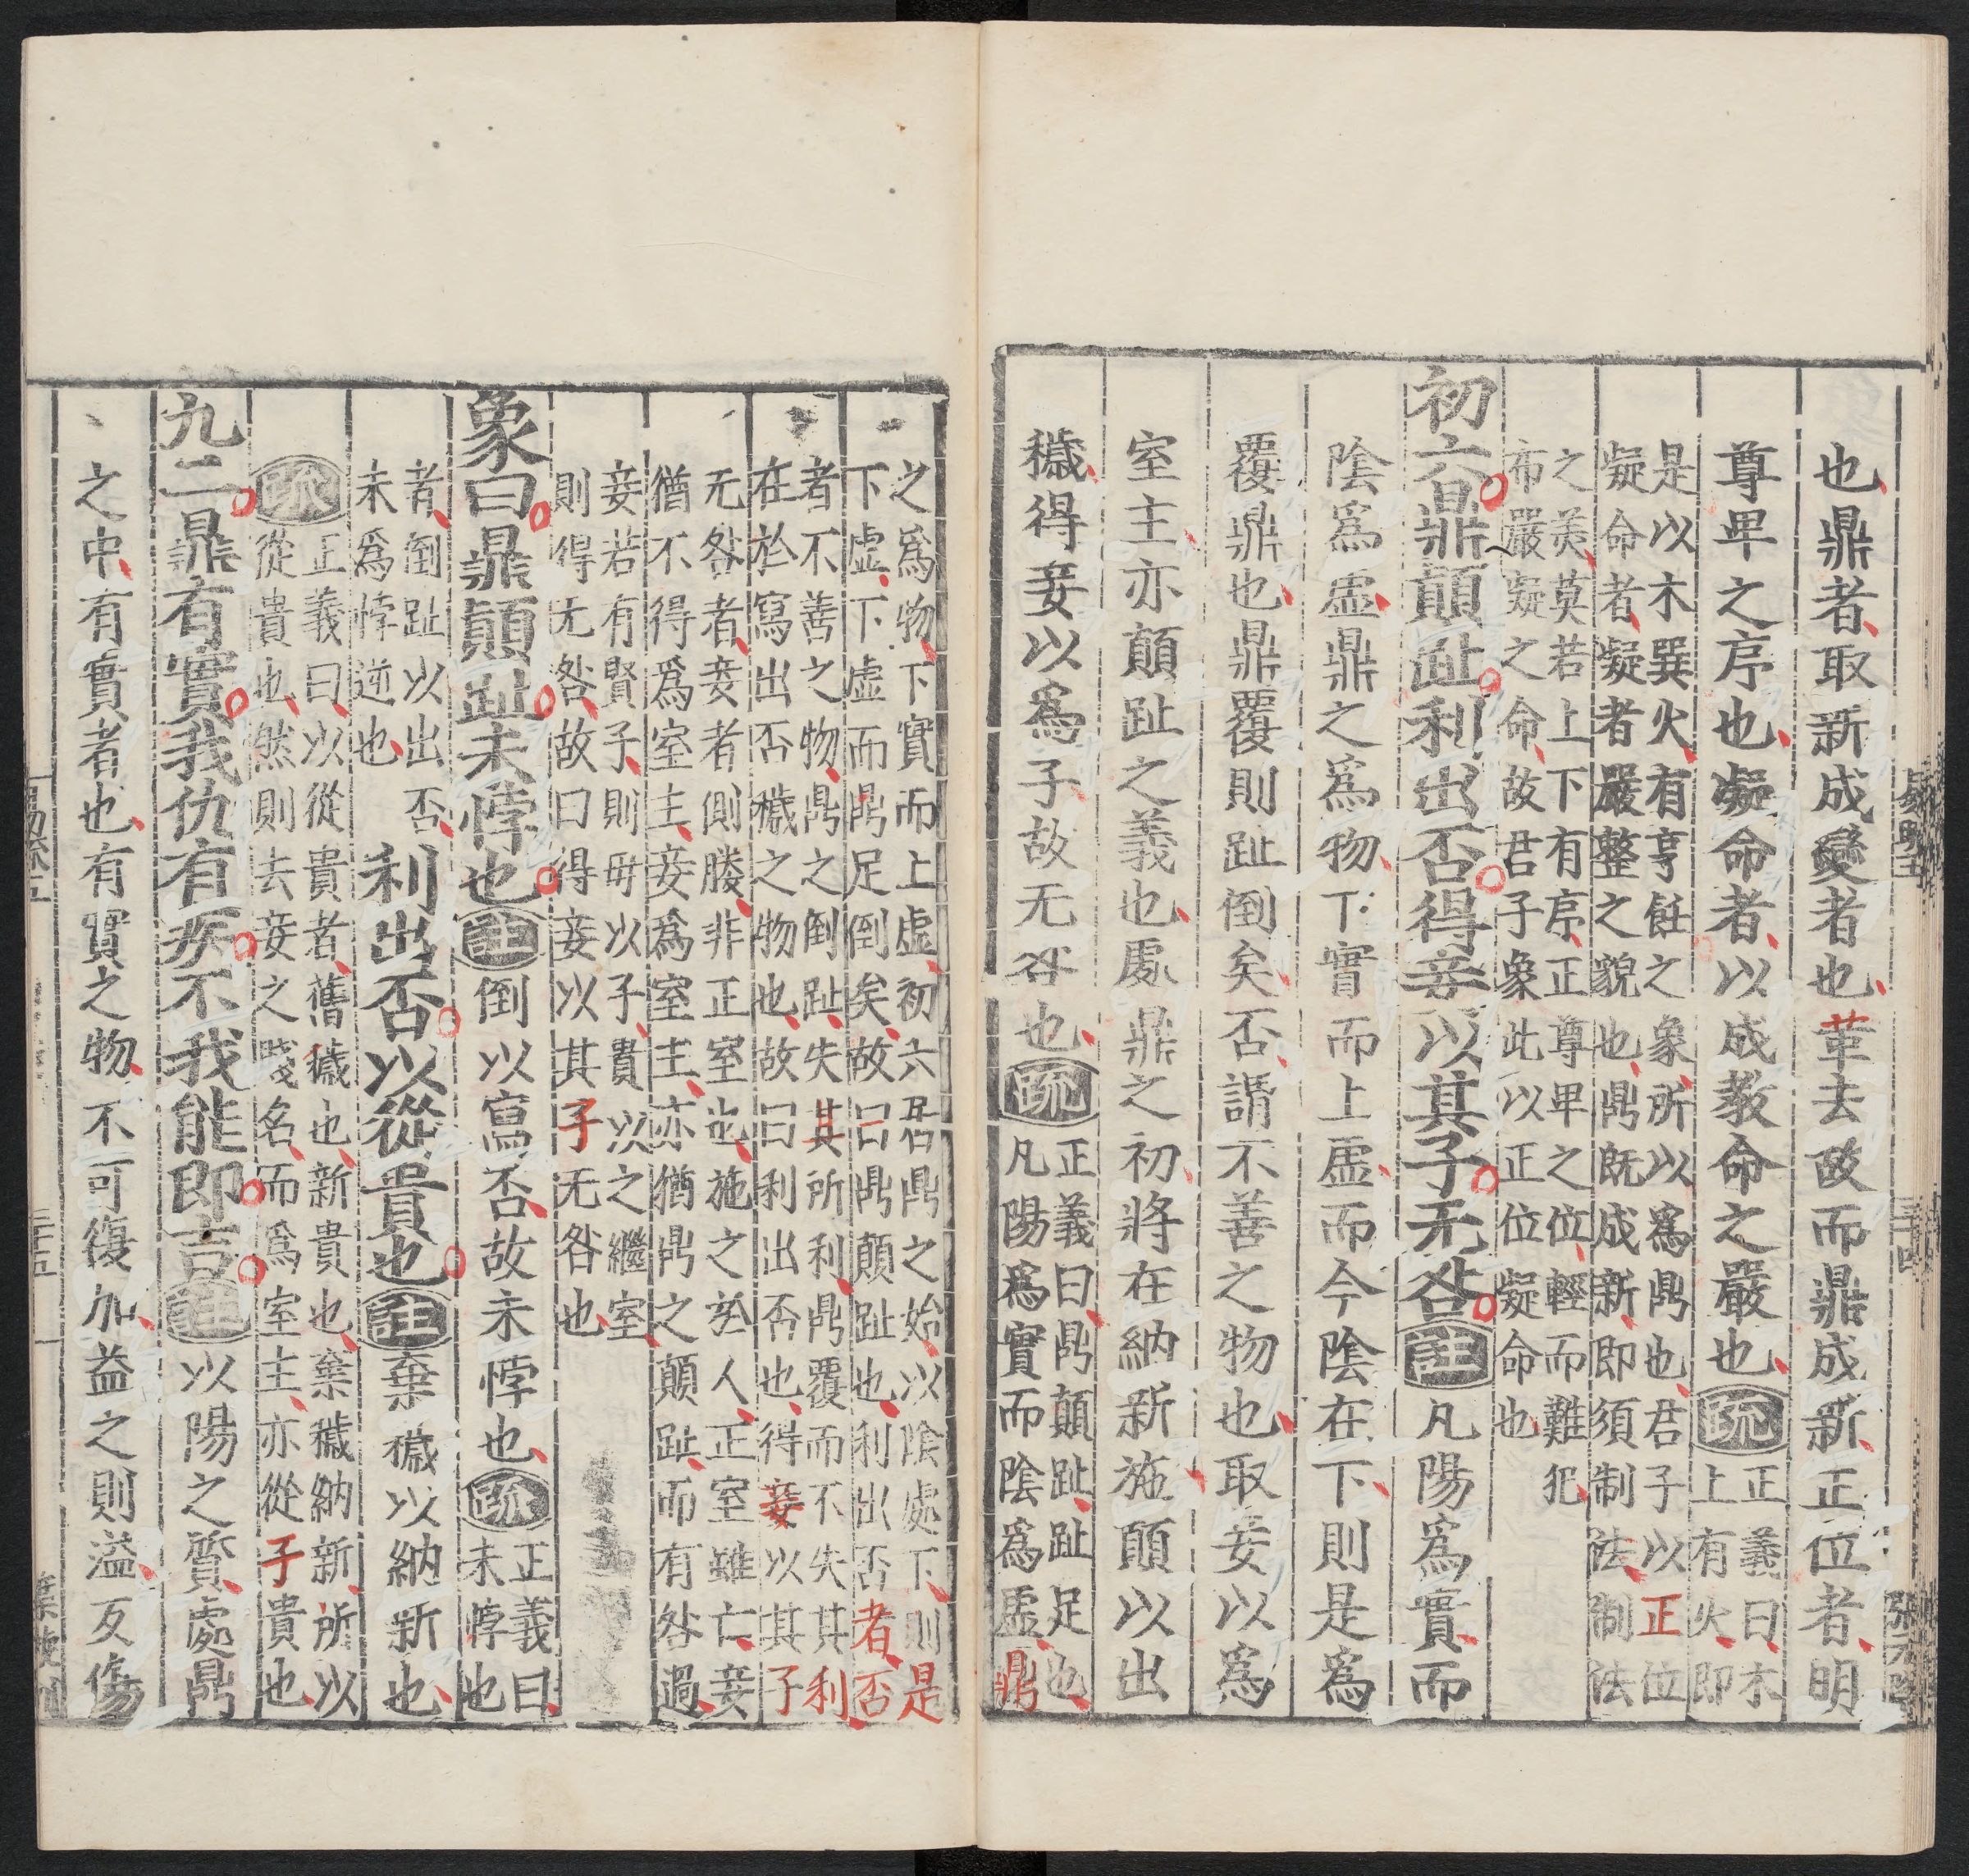 也鼎者取新成變者也革去故而鼎成新正位者明
尊卑之序也凝命者以成教命之嚴也疏正義曰木
上有火即
是以木巽火有亨飪之象所以爲鼎也君子以正位
凝命者凝者嚴整之貌也鼎既成新即須制法制法
之美莫若上下有序正尊卑之位輕而難犯
布嚴凝之命故君子象此以正位凝命也
初六鼎顛趾利出否得妾以其子无咎註凡陽爲實而
陰爲虛鼎之爲物下實而上虛而今陰在下則是爲
覆鼎也鼎覆則趾倒矣否謂不善之物也取妾以爲
室主亦顛趾之義也處鼎之初將在納新施顛以出
穢得妾以爲子故无咎也疏正義曰鼎顛趾趾足也
凡陽爲實而陰爲虛鼎
之爲物下實而上虛初六居鼎之始以陰處下則是
下虛下虛而鼎足倒矣故曰鼎顛趾也利出否者否
者不善之物鼎之倒趾失其所利鼎覆而不失其利
在於寫出否穢之物也故曰利出否也得妾以其子
无咎者妾者側媵非正室也施之於人正室雖亡妾
猶不得爲室主妾爲室主亦猶鼎之顛趾而有咎過
妾若有賢子則毋以子貴以之繼室
則得无咎故曰得妾以其子无咎也
象曰鼎顛趾未悖也註倒以寫否故未悖也疏正義曰
未悖也
者倒趾以出否
未爲悖逆也
利出否以從貴也註棄穢以納新也
疏正義曰以從貴者舊穢也新貴也棄穢納新所以
從貴也然則去妾之賤名而爲室主亦從子貴也
九二鼎有實我仇有疾不我能即吉註以陽之質處鼎
之中有實者也有實之物不可復加益之則溢反傷
易疏五
三十五